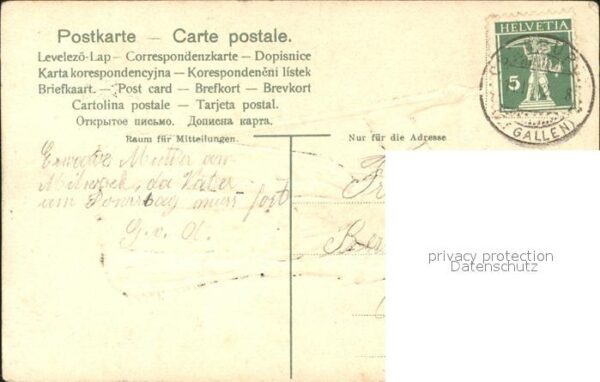 Postkarte — Carte postale.
Levelező-Lap — Correspondenzkarte — Dopisnice
Karta korespondencyjna — Korespondenční lístek
Briefkaart. — Post card — Brefkort — Brevkort
Cartolina postale — Tarjeta postal.
Открытое письмо. Дописна карта.
Raum für Mitteilungen.
Nur für die Adresse
HELVETIA
5
(ST. GALLEN)
Erwarte Mutter am
Mittwoch, da Vater
am Donnerstag muss fort
privacy protection
Datenschutz